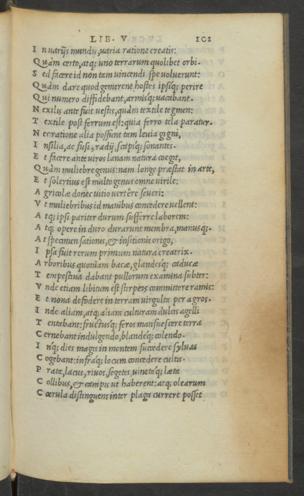 LIB. V 101
I n uarijs mundis, uaria ratione creatis:
Q uàm certo, atq; uno terrarum quolibet orbi.
S ed facere id non tam uincendi spe uoluerunt:
Q uàm dare quod gemerent hostes ipsiq; perire
Q ui numero diffidebant, armisq; uacabant.
N exilis ante fuit uestis, quàm textile tegmen:
T extile post ferrum est: quia ferro tela paratur.
N ec ratione alia possunt tam leuia gigni,
I nsilia, ac fusi, radij scapiq; sonantes.
E t facere ante uiros lanam natura coegit,
Q uàm muliebre genus: nam longe præstat in arte,
E t solertius est multo genus omne uirile:
A gricolæ donec uitio uertêre seueri:
V t muliebribus id manibus concedere uellent:
A tq; ipsi pariter durum sufferre laborem:
A tq; opere in duro durarent membra, manusq;
A t specimen sationis, & insitionis origo,
I psa fuit rerum primum natura creatrix.
A rboribus quoniam bacæ, glandesq; caducæ
T empestiua dabant pullorum examina subter:
V nde etiam libitum est stirpeis committere ramis:
E t noua defodere in terram uirgulta per agros.
I nde aliam, atq; aliam culturam dulcis agelli
T entabant: fructusq; feros mansuescere terra
C ernebant indulgendo, blandeq; colendo.
I nq; dies magis in montem succedere syluas
C ogebant: infraq; locum concedere cultis.
P rata, lacus, riuos, segetes, uinetaq; læta
C ollibus, & campis ut haberent: atq; olearum
C œrula distinguens inter plaga currere posset